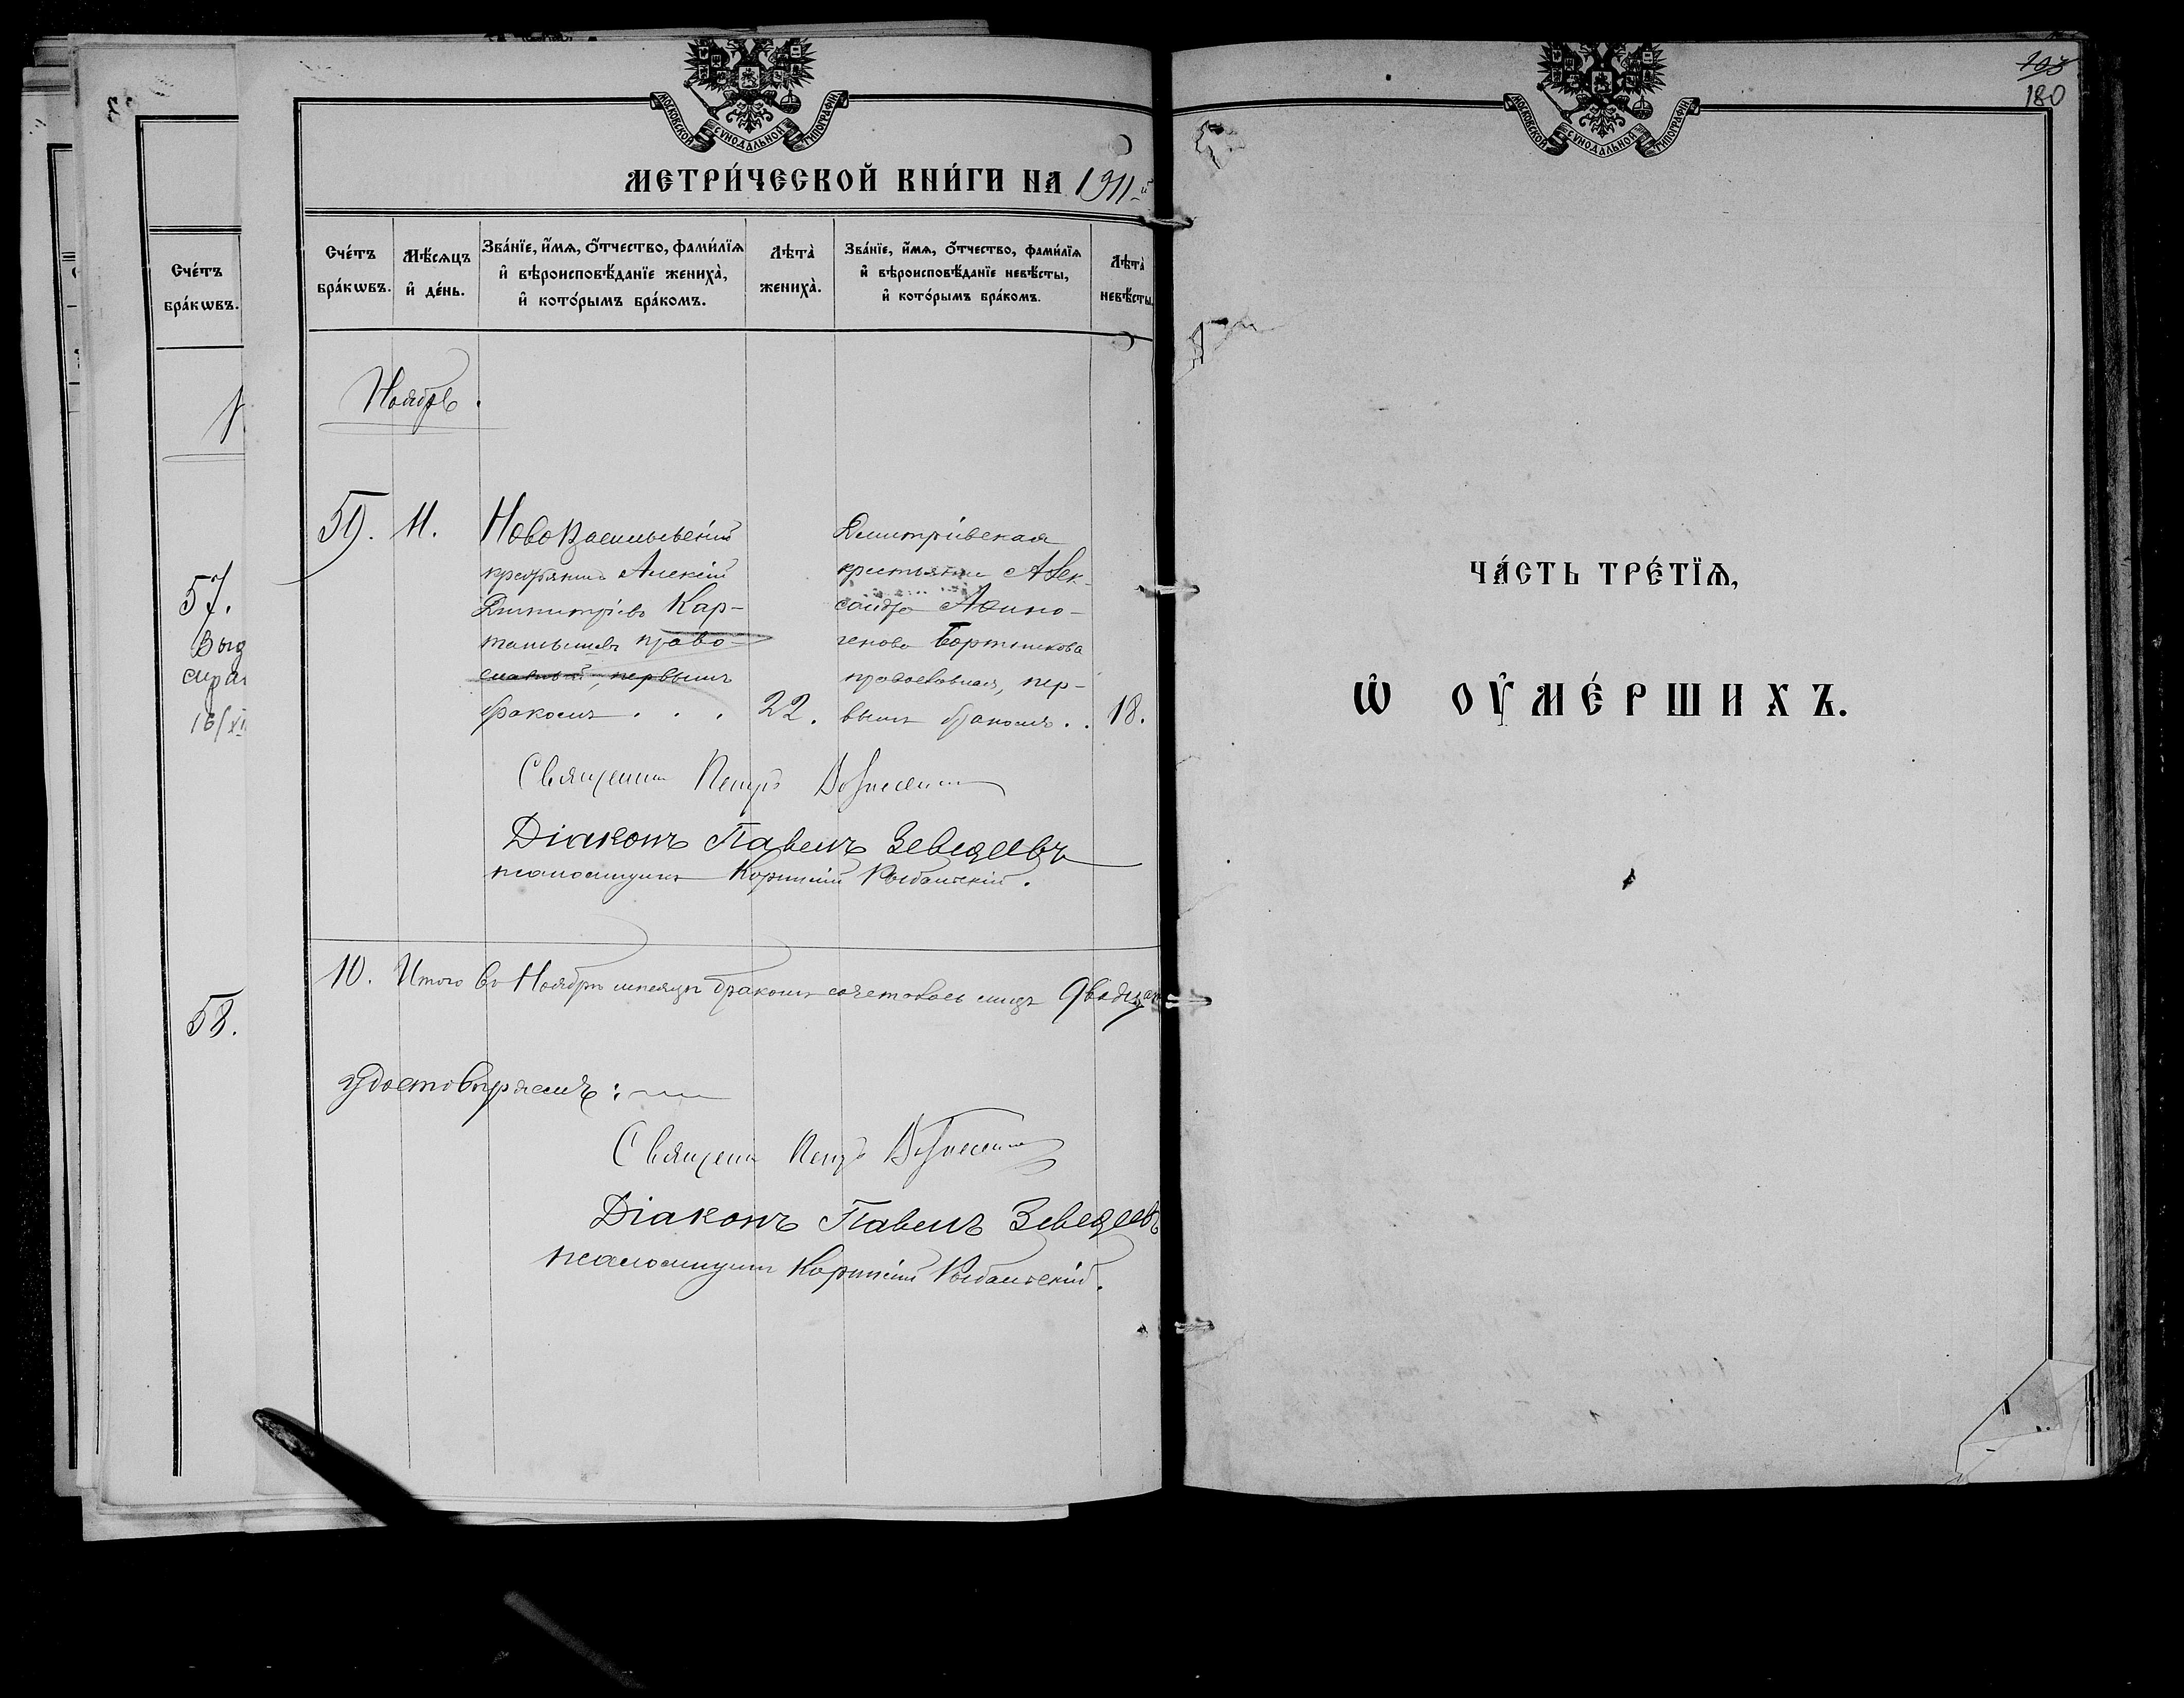 Счетъ
бракѡвъ.
57.
Выд
16/XI
58.
МОСКОВСКОЙ СѴНОДАЛЬНОЙ ТИПОГРАФІИ
МЕТРИ́ЧЕСКОЙ КНИ́ГИ НА 1911-й
Сче́тъ
бра́кѡвъ.
Мѣ́сѧцъ
и҆ де́нь.
Зва́нїе, и҆́мѧ, ѻ҆́тчество, фами́лїѧ
и҆ вѣроисповѣ́данїе жениха̀,
и҆ кото́рымъ бра́комъ.
Лѣта̀
жениха̀.
Зва́нїе, и҆́мѧ, ѻ҆́тчество, фами́лїѧ
и҆ вѣроисповѣ́данїе невѣ́сты,
и҆ кото́рымъ бра́комъ.
Лѣта̀
невѣ́сты.
Ноябрь.
59. 11.
НовоВасильевскій
крестьянинъ Алексій
Димитріевъ Кар-
танышевъ право-
славный, первымъ
бракомъ . . . 22.
Димитріевская
крестьянка Алек-
сандра Аѳино-
генова Бортникова
православная, пер-
вымъ бракомъ . . 18.
Священникъ Петръ Вознесенскій
Діаконъ Павелъ Зеведеевъ
псаломщикъ Корнилій Рыбальскій.
10. Итого въ Ноябрѣ мѣсяцѣ бракомъ сочеталось лицъ двадцать
удостовѣряемъ:
Священникъ Петръ Вознесенскій
Діаконъ Павелъ Зеведеевъ
псаломщикъ Корнилій Рыбальскій.
193
180
МОСКОВСКОЙ СѴНОДАЛЬНОЙ ТИПОГРАФІИ
ЧА́СТЬ ТРЕ́ТЇѦ,
Ѡ҆ ОУ҆МЕ́РШИХЪ.